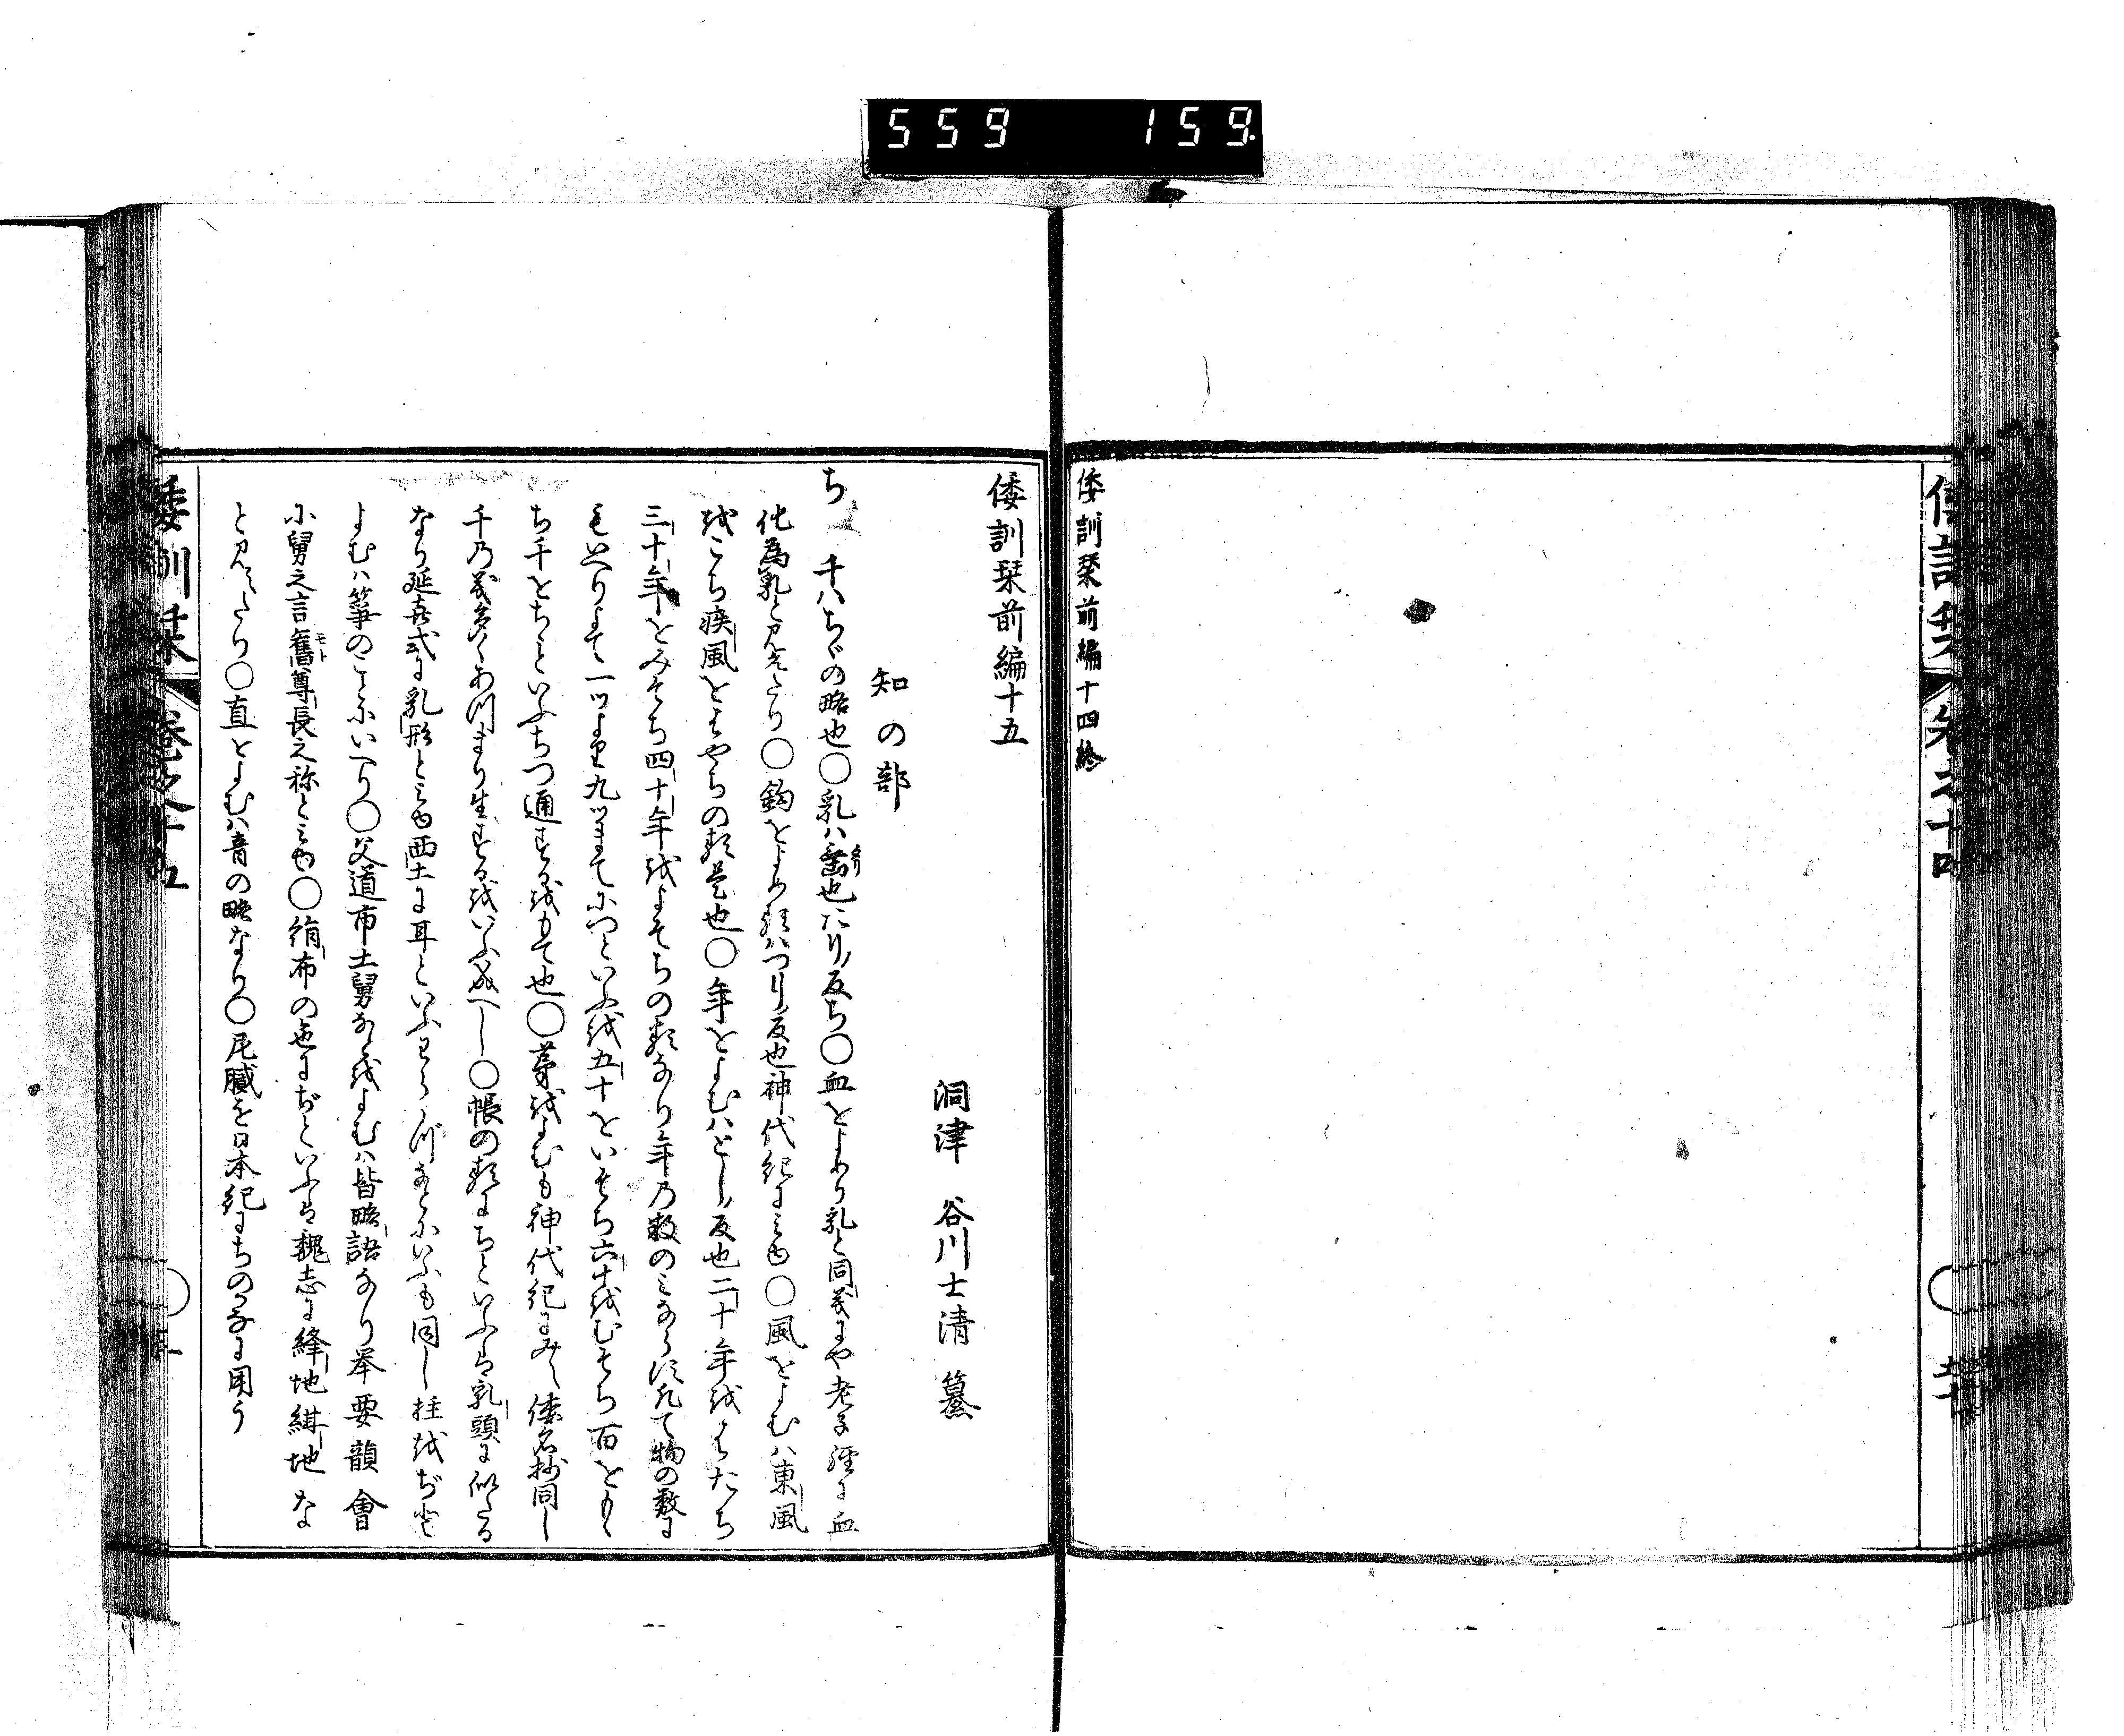 559 159
倭訓栞前編十四終
倭訓栞前編十五
洞津 谷川士清 纂
知の部
ち 千ハちゞの略也〇乳ハ垂也たり反ち〇血をよめり乳と同義にや老子經に血
化為乳と見えたり〇鈎をよめるハつり反也神代紀に見ゆ〇風をよむハ東風
をこち疾風をはやちの類是也〇年をよむハとし反也二十年をはたち
三十年をみそち四十年をよそちの類なり年の数のミならす凡て物の数に
もいへりよて一ツより九ツまてにつといふを五十をいそち六十をむそち百をもゝ
ち千をちゝといふちつ通するをもて也〇茅をよむも神代紀にみゆ倭名抄同し
千の義多くあつまり生するをいふ成へし〇帳の類にちといふは乳頭に似たる
なり延喜式に乳形と見ゆ西土に耳といふわらんつなとにいふも同し柱をぢと
よむハ箏のことにいへり〇父道市土舅なとをよむハ皆略語なり举要韻會
小舅之言舊尊長之称と見ゆ〇絹布の也にぢといふは魏志に絳地紺地な
と見えたり〇直とよむハ音の略なり〇尾臓を日本紀にちの子に用う
倭訓栞 巻之十五